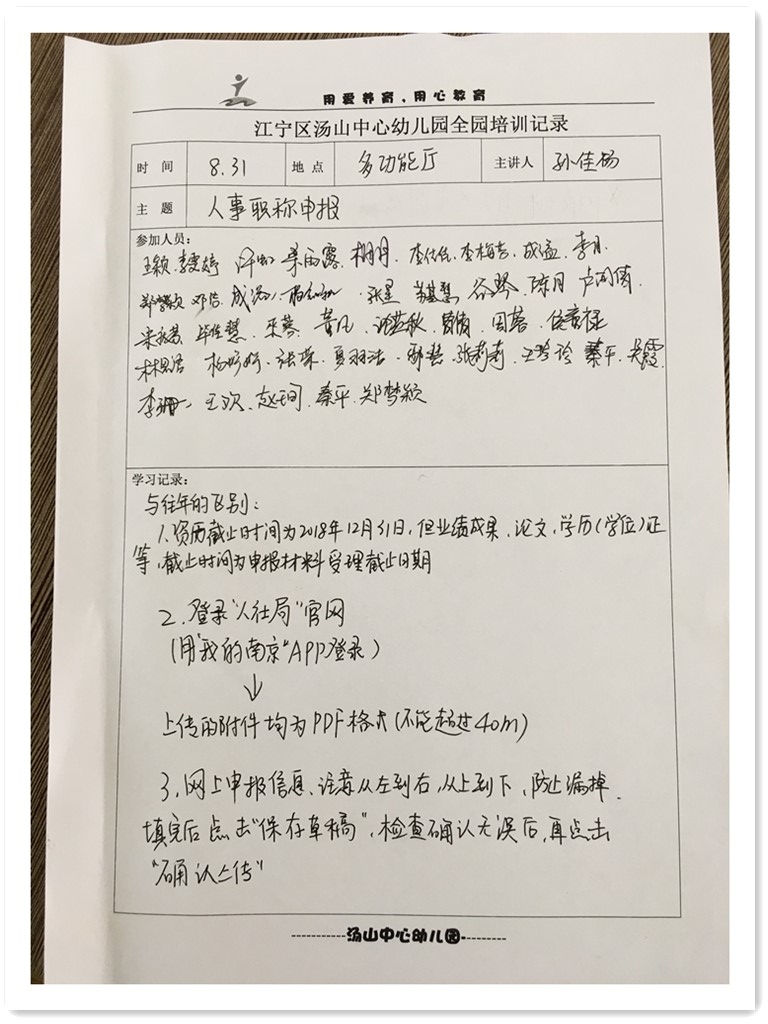 用爱养育，用心教育
江宁区汤山中心幼儿园全园培训记录
时 间 8.31 地 点 多功能厅 主讲人 孙佳杨
主 题 人事职称申报
参加人员：
王颖、李雯婷 朱雨露、李梅芳、成温、李月
郑梦颖 邓洁 张星 谷琴 陈月 卢闪闪
毕佳慧 黄凡 沈英秋 周蓉
张荣 夏羽洁 张莉莉 王玲玲 蔡平 吴霞
李珊、王欢、赵珂、秦平、郑梦颖
学习记录：
与往年的区别：
1、资历截止时间为2018年12月31日，但业绩成果、论文，学历(学位)证
等，截止时间为申报材料受理截止日期
2、登录"人社局"官网
(用"我的南京"APP登录)
↓
上传的附件均为PDF格式(不能超过40m)
3、网上申报信息、注意从左到右，从上到下，防止漏掉．
填完后点击"保存草稿"，检查确认无误后，再点击
"确认上传"
汤山中心幼儿园